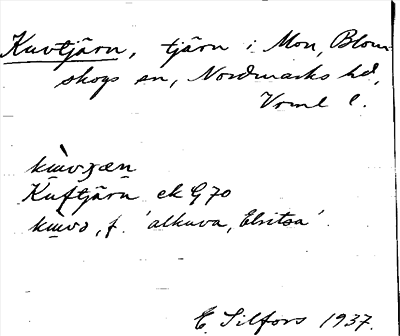 Kuvtjärn, tjärn i Mon, Blom-
skogs sn, Nordmarks hd,
Vrml l.
Kuftjärn ek G70
f. 'alkuva,
E. Silfors 1937.